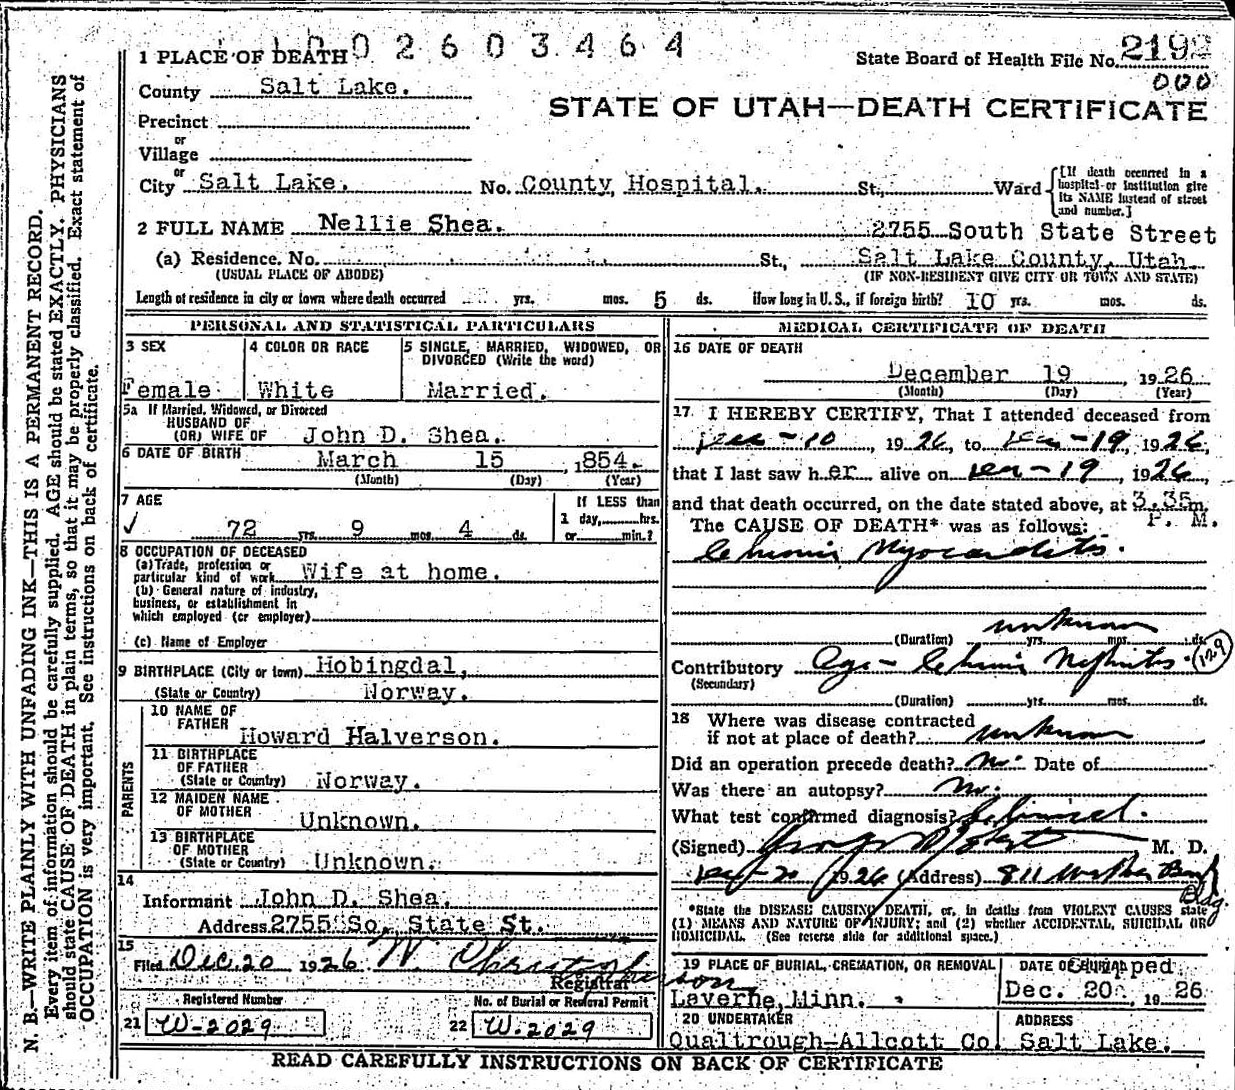 1002603464
1 PLACE OF DEATH
State Board of Health File No. 2192
000
County Salt Lake.
STATE OF UTAH—DEATH CERTIFICATE
Precinct
or
Village
or
City Salt Lake. No. County Hospital. St., Ward
[If death occurred in a hospital or institution give its NAME instead of street and number.]
2 FULL NAME Nellie Shea. 2755 South State Street
(a) Residence. No. St., Salt Lake County, Utah.
(USUAL PLACE OF ABODE) (IF NON-RESIDENT GIVE CITY OR TOWN AND STATE)
Length of residence in city or town where death occurred yrs. mos. 5 ds. How long in U. S., if foreign birth? 10 yrs. mos. ds.
PERSONAL AND STATISTICAL PARTICULARS
3 SEX
Female
4 COLOR OR RACE
White
5 SINGLE, MARRIED, WIDOWED, OR DIVORCED (Write the word)
Married.
5a If Married, Widowed, or Divorced
HUSBAND OF
(OR) WIFE OF John D. Shea.
6 DATE OF BIRTH March 15, 1854.
(Month) (Day) (Year)
7 AGE
If LESS than
1 day, hrs.
or min.?
72 yrs. 9 mos. 4 ds.
8 OCCUPATION OF DECEASED
(a) Trade, profession or
particular kind of work Wife at home.
(b) General nature of industry,
business, or establishment in
which employed (or employer)
(c) Name of Employer
9 BIRTHPLACE (City or town) Hobingdal,
(State or Country) Norway.
PARENTS
10 NAME OF
FATHER Howard Halverson.
11 BIRTHPLACE
OF FATHER
(State or Country) Norway.
12 MAIDEN NAME
OF MOTHER Unknown.
13 BIRTHPLACE
OF MOTHER
(State or Country) Unknown.
14
Informant John D. Shea.
Address 2755 So. State St.
15
Filed Dec. 20 1926 W Christopherson
Registrar
Registered Number
21 W-2029
No. of Burial or Removal Permit
22 W-2029
MEDICAL CERTIFICATE OF DEATH
16 DATE OF DEATH
December 19, 1926
(Month) (Day) (Year)
17 I HEREBY CERTIFY, That I attended deceased from
Dec-10, 1926, to Dec-19, 1926,
that I last saw her alive on Dec-19, 1926,
and that death occurred, on the date stated above, at 3.35m.
P. M.
The CAUSE OF DEATH* was as follows:
Chronic Myocarditis.
unknown
(Duration) yrs. mos. ds.
Contributory Age - Chronic Nephritis. 129
(Secondary)
(Duration) yrs. mos. ds.
18 Where was disease contracted
if not at place of death? unknown
Did an operation precede death? No. Date of
Was there an autopsy? No.
What test confirmed diagnosis? Clinical.
(Signed) George M. D.
Dec-20 1926 (Address) 811 Walker Bank
Bldg.
*State the DISEASE CAUSING DEATH, or, in deaths from VIOLENT CAUSES state
(1) MEANS AND NATURE OF INJURY; and (2) whether ACCIDENTAL, SUICIDAL OR
HOMICIDAL. (See reverse side for additional space.)
19 PLACE OF BURIAL, CREMATION, OR REMOVAL
Laverne, Minn.
DATE OF BURIAL
Dec. 20, 1926
20 UNDERTAKER ADDRESS
Qualtrough-Allcott Co. Salt Lake.
READ CAREFULLY INSTRUCTIONS ON BACK OF CERTIFICATE
N. B.—WRITE PLAINLY WITH UNFADING INK—THIS IS A PERMANENT RECORD.
Every item of information should be carefully supplied. AGE should be stated EXACTLY. PHYSICIANS
should state CAUSE OF DEATH in plain terms, so that it may be properly classified. Exact statement of
OCCUPATION is very important. See instructions on back of certificate.